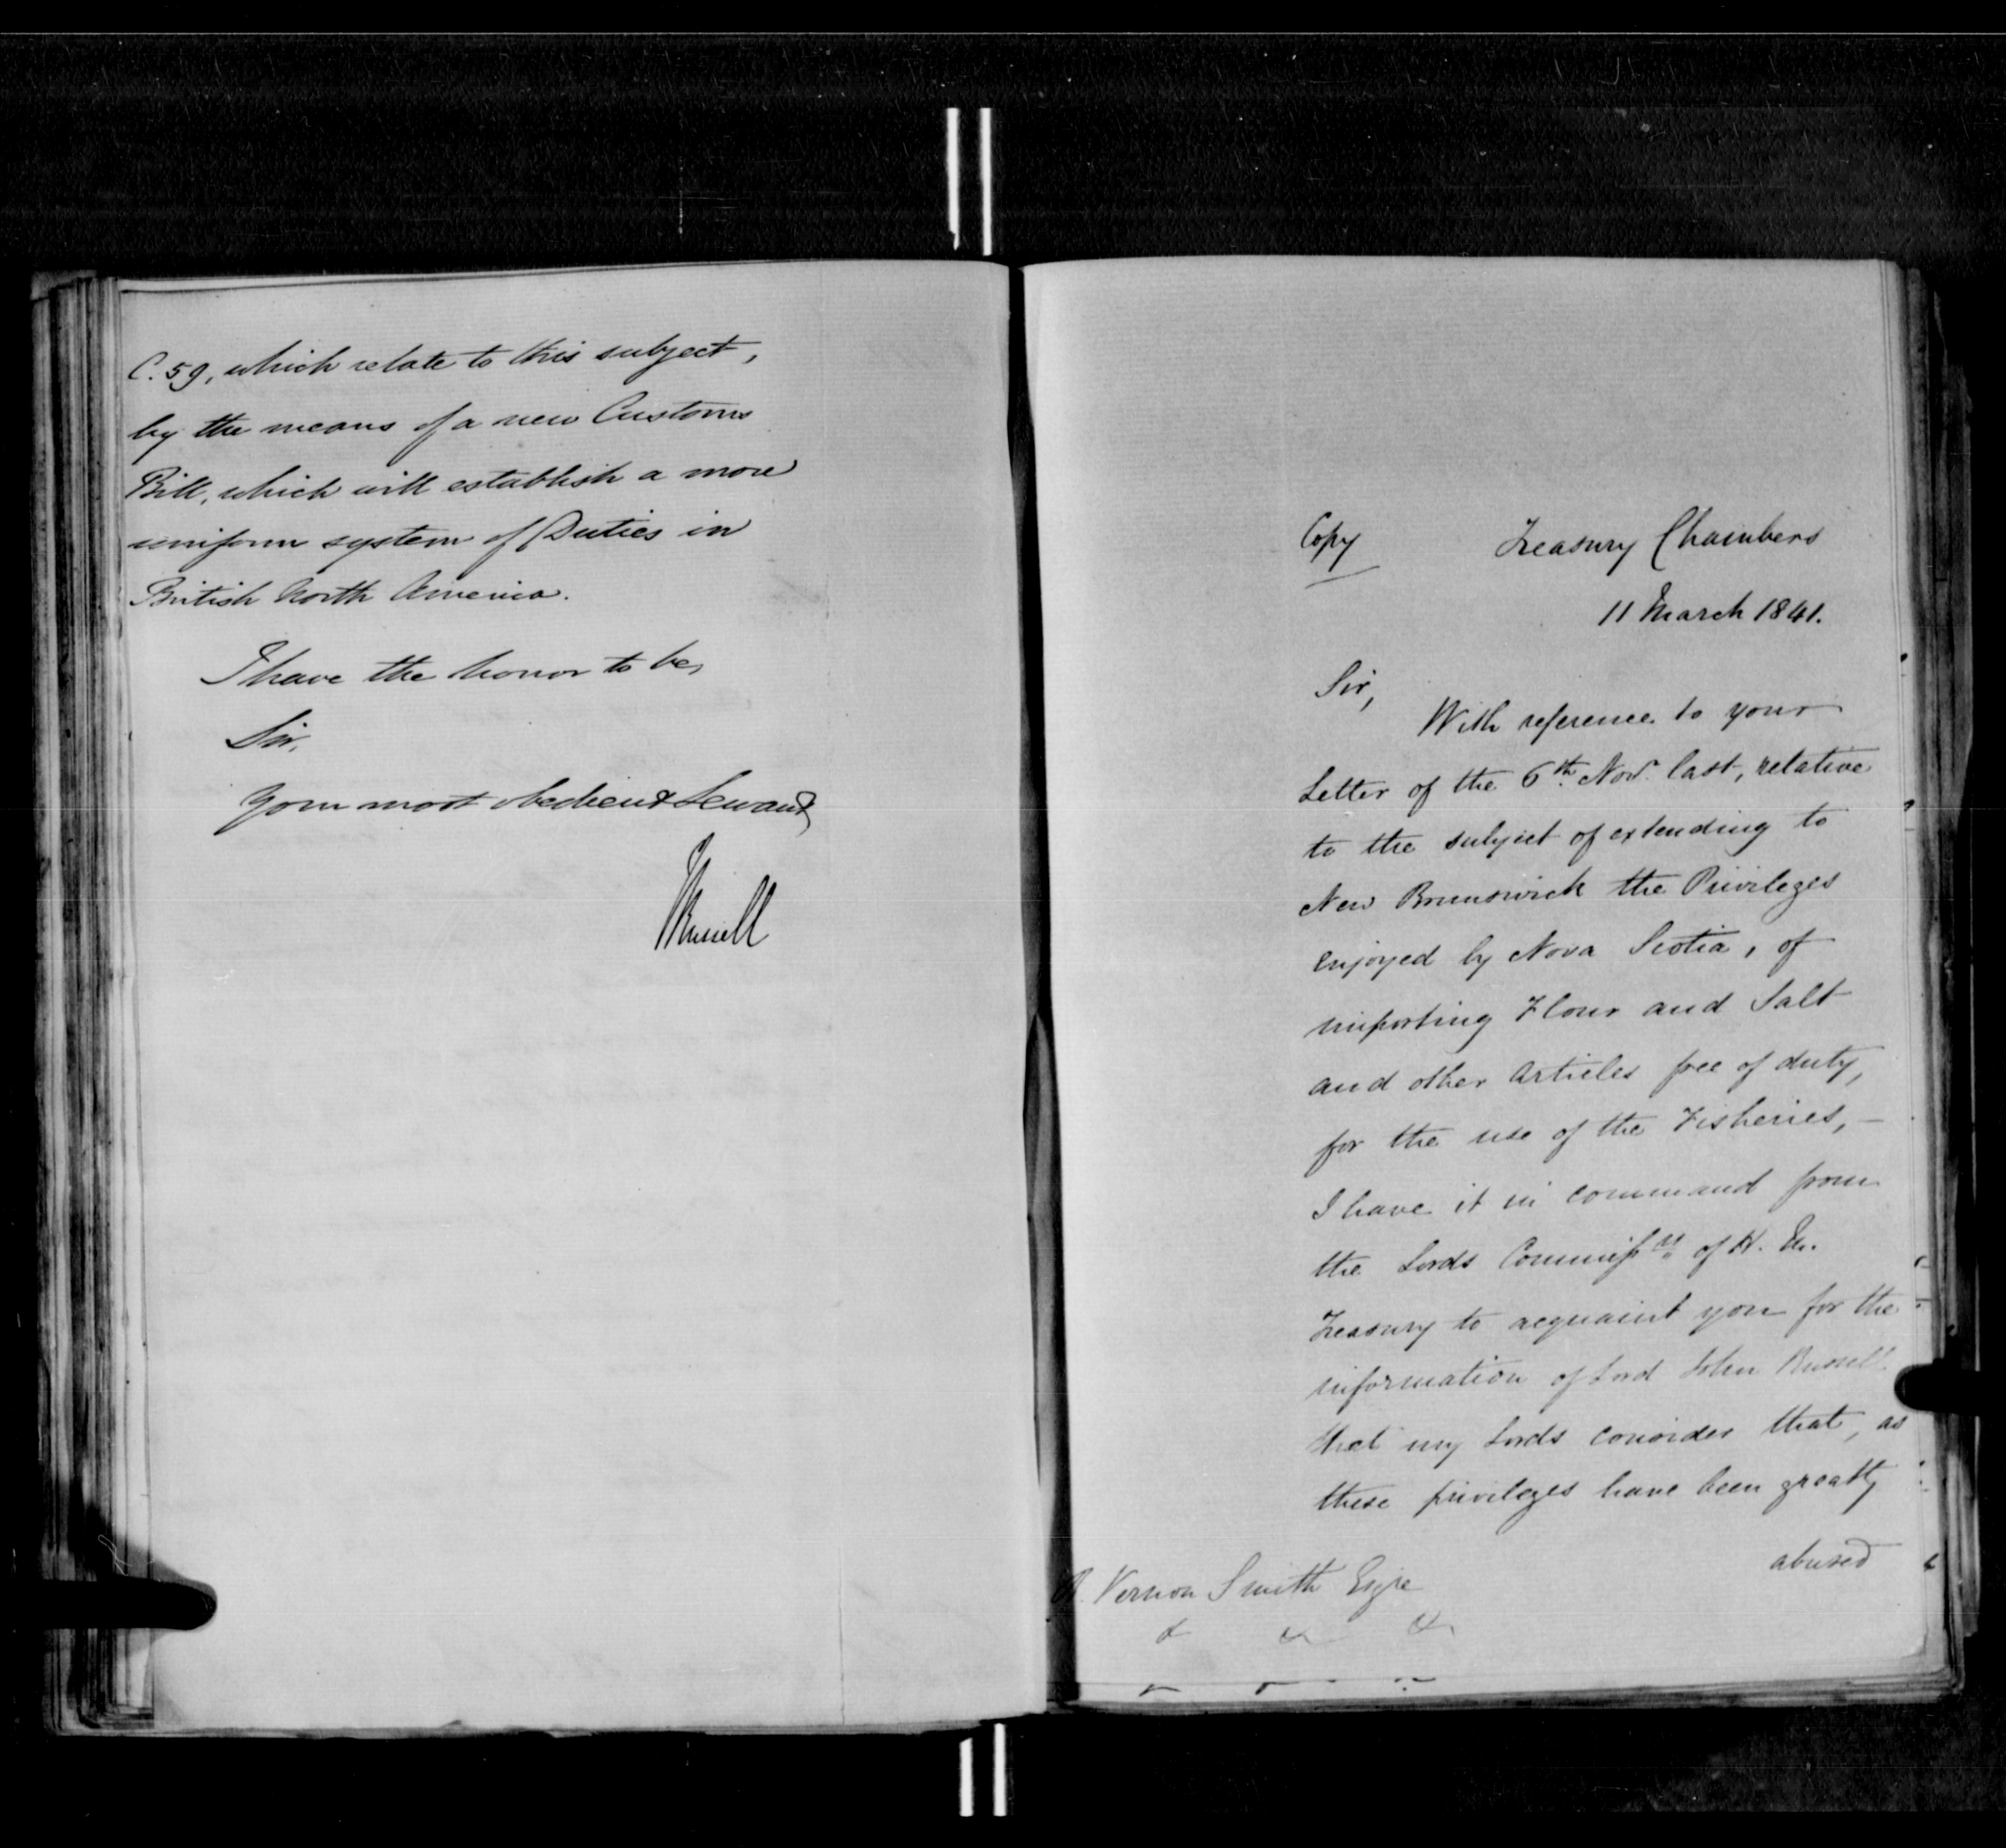 C. 59, which relate to this subject,
by the means of a new Customs
Bill, which will establish a more
uniform system of Duties in
British North America.
I have the honor to be,
Sir,
Your most obedient Servant,
J Russell
Copy
Treasury Chambers
11 March 1841.
Sir,
With reference to your
Letter of the 6th Novr. last, relative
to the subject of extending to
New Brunswick the Privileges
enjoyed by Nova Scotia, of
importing Flour and Salt
and other Articles free of duty,
for the use of the Fisheries, —
I have it in command from
the Lords Commissrs of H. M.
Treasury to acquaint you for the
information of Lord John Russell
that my Lords consider that, as
these privileges have been greatly
abused
R. Vernon Smith Esqre
& & &